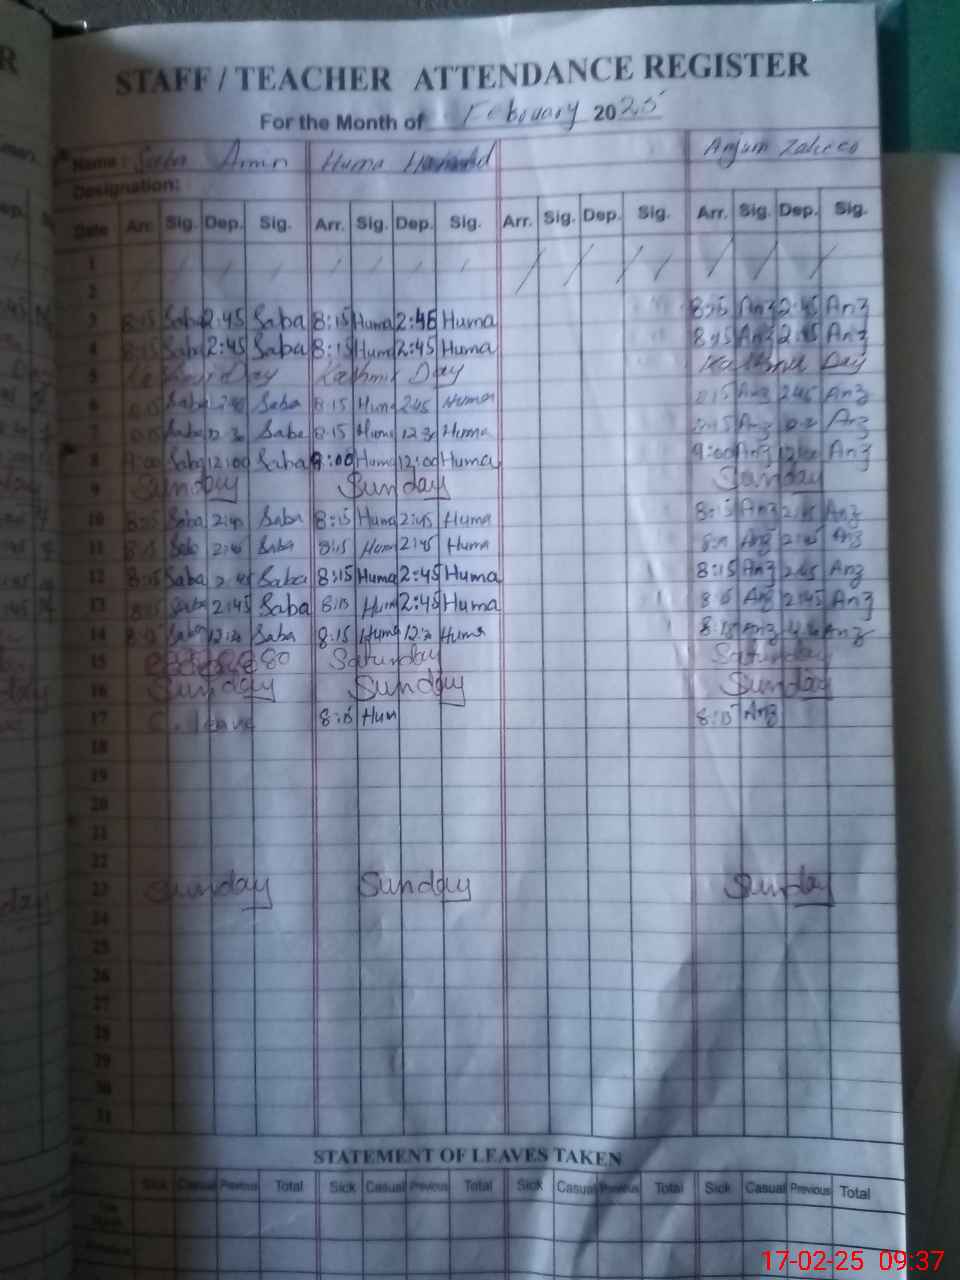 STAFF / TEACHER ATTENDANCE REGISTER
For the Month of February 2025
Name: Saba Amin Huma Anjum
Designation:
Date Arr. Sig. Dep. Sig. Arr. Sig. Dep. Sig. Arr. Sig. Dep. Sig. Arr. Sig. Dep. Sig.
1 / / / / / / / / / / / / / /
2
3 8:15 Saba 2:45 Saba 8:15 Huma 2:45 Huma 8:15 Anz 2:45 Anz
4 8:15 Saba 2:45 Saba 8:15 Huma 2:45 Huma 8:15 Anz 2:45 Anz
5 Kashmir Day Kashmir Day Kashmir Day
6 8:15 Saba 2:45 Saba 8:15 Huma 2:45 Huma 8:15 Anz 2:45 Anz
7 8:15 Saba 12:30 Saba 8:15 Huma 12:30 Huma 8:15 Anz Anz
8 9:00 Saba 12:00 Saba 9:00 Huma 12:00 Huma 9:00 Anz 12:00 Anz
9 Sunday Sunday Sunday
10 8:15 Saba 2:45 Saba 8:15 Huma 2:45 Huma 8:15 Anz 2:45 Anz
11 8:15 Saba 2:45 Saba 8:15 Huma 2:45 Huma 8:15 Anz 2:45 Anz
12 8:15 Saba 2:45 Saba 8:15 Huma 2:45 Huma 8:15 Anz 2:45 Anz
13 8:15 Saba 2:45 Saba 8:15 Huma 2:45 Huma 8:15 Anz 2:45 Anz
14 8:15 Saba 12:30 Saba 8:15 Huma 12:30 Huma 8:15 Anz Anz
15 Saturday Saturday
16 Sunday Sunday Sunday
17 C. leave 8:15 Hum 8:15 Anz
18
19
20
21
22
23 Sunday Sunday Sunday
24
25
26
27
28
29
30
31
STATEMENT OF LEAVES TAKEN
Sick Casual Previous Total Sick Casual Previous Total Sick Casual Previous Total Sick Casual Previous Total
17-02-25 09:37